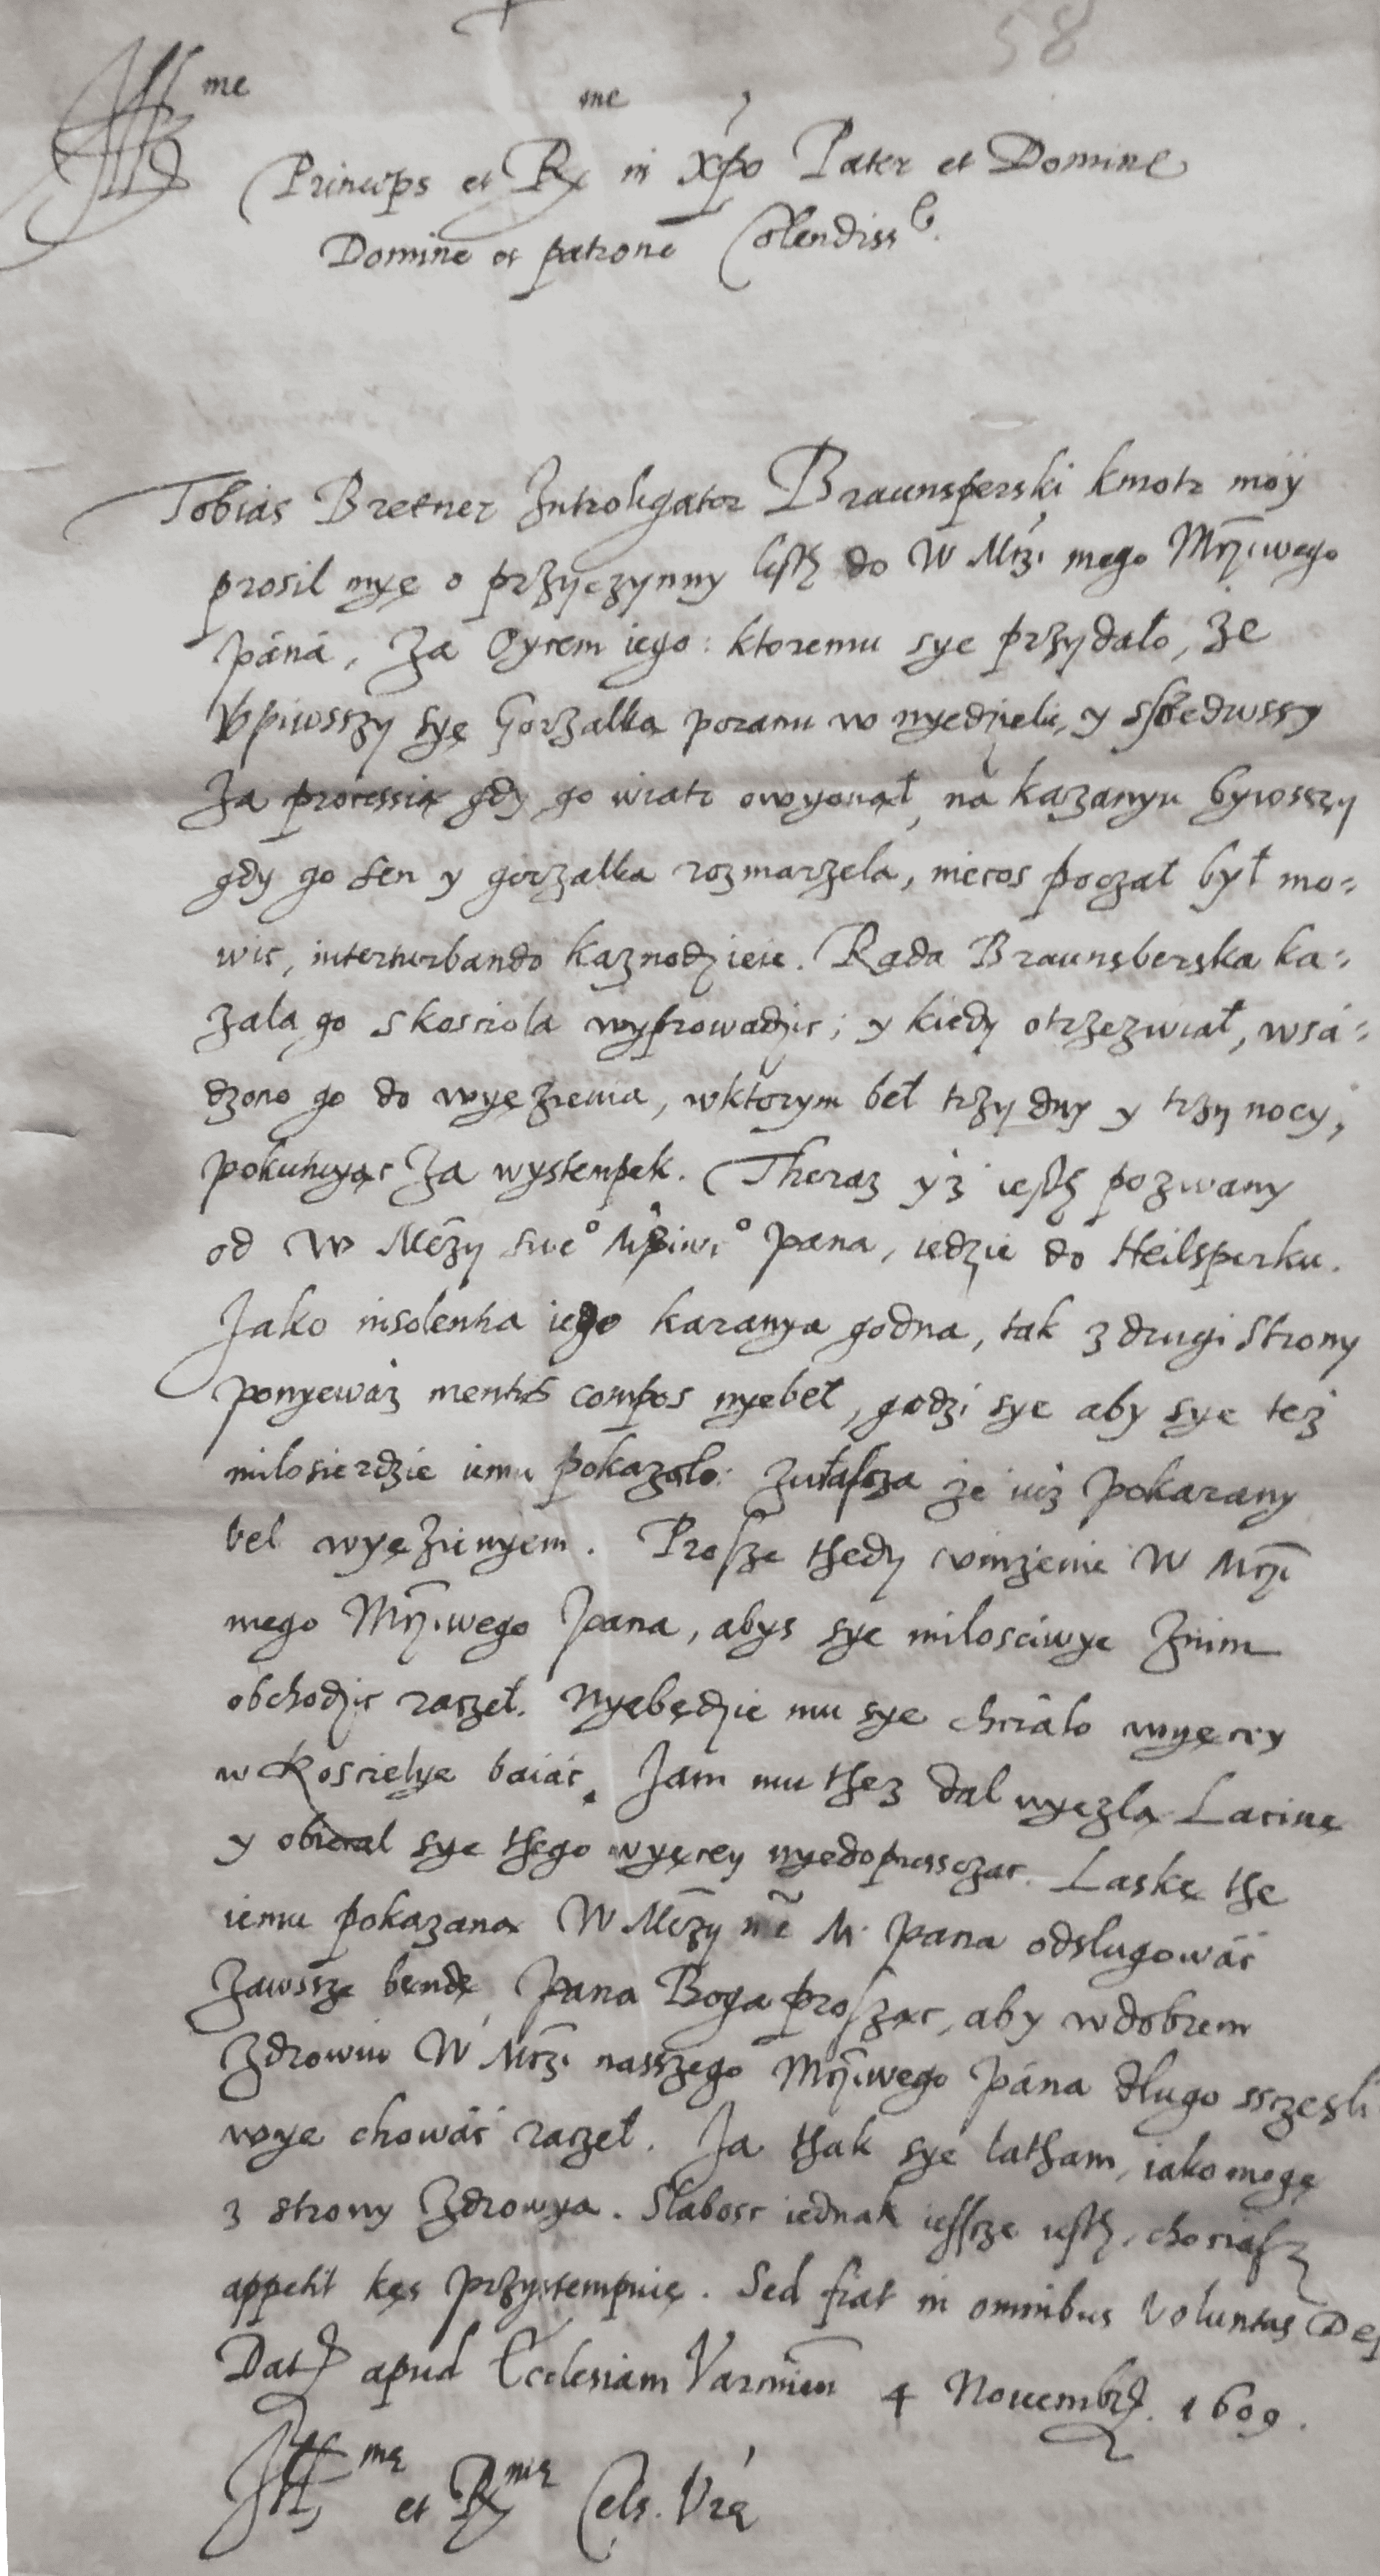 58
Ill me
Princeps et R me in Xpo Pater et Domine
Domine et patrone Colendiss e.
Tobias Bretner Introligator Braunsperski kmotr moy
prosil myę o przyczynny listh do W Mczi mego Mczi:wego
páná, za Oycem iego: ktoremu sye przydało, że
vpiwsszy syę Gorzałką poranu w nyedzielię, y sszedwssy
za processią gdy go wiatr owyonął, na kazanyu bywsszy
gdy go sen y gorzałka rozmarzela, niecos począł był mo=
wic, interturbando kaznodzieie. Rada Braunsberska ka=
zala go s kosciola wyprowadzic; y kiedy otrzezwiał, wsá=
dzono go do wyęzienia, w ktorym beł trzy dny y trzy nocy,
pokutuyąc za wystempek. Theraz yż iesth pozwany
od W Mczy sweo Mciwo pana, iedzie do Heilsperku.
Jako insolentia iego karanya godna, tak z drugi strony
ponyewáz mentis compos nyebeł, godzi sye aby sye też
milosierdzie iemu pokazało: zwłascza że iuż pokarany
bel wyęzienyem. Proszę thedy vnizenie W Mczi
mego Mczi:wego pana, abys sye milosciwye znim
obchodzic raczeł. Nyębędzie mu sye chciało wyęcy
w Koscielye baiác. Jam mu thez dal nyezlą Lacinę
y obiecal sye thego wyęcey nyedopussczac. Laskę thę
iemu pokazaną W Mczy me M. pana odslugowác
zawssze bendę Pana Boga prosząc, aby w dobrem
zdrowiu W Mczi nasszego Mczi:wego pána dlugo ssczesli
wye chowác raczeł. Ja thak sye latham, iako mogę
z strony zdrowya. Slabosc iednak iessce iesth, chociasz
appetit kęs przystempuię. Sed fiat in omnibus voluntas Dei
Dat apud Ecclesiam Varmien 4 Novembr. 1609.
Ill me et R me Cels. Vrę